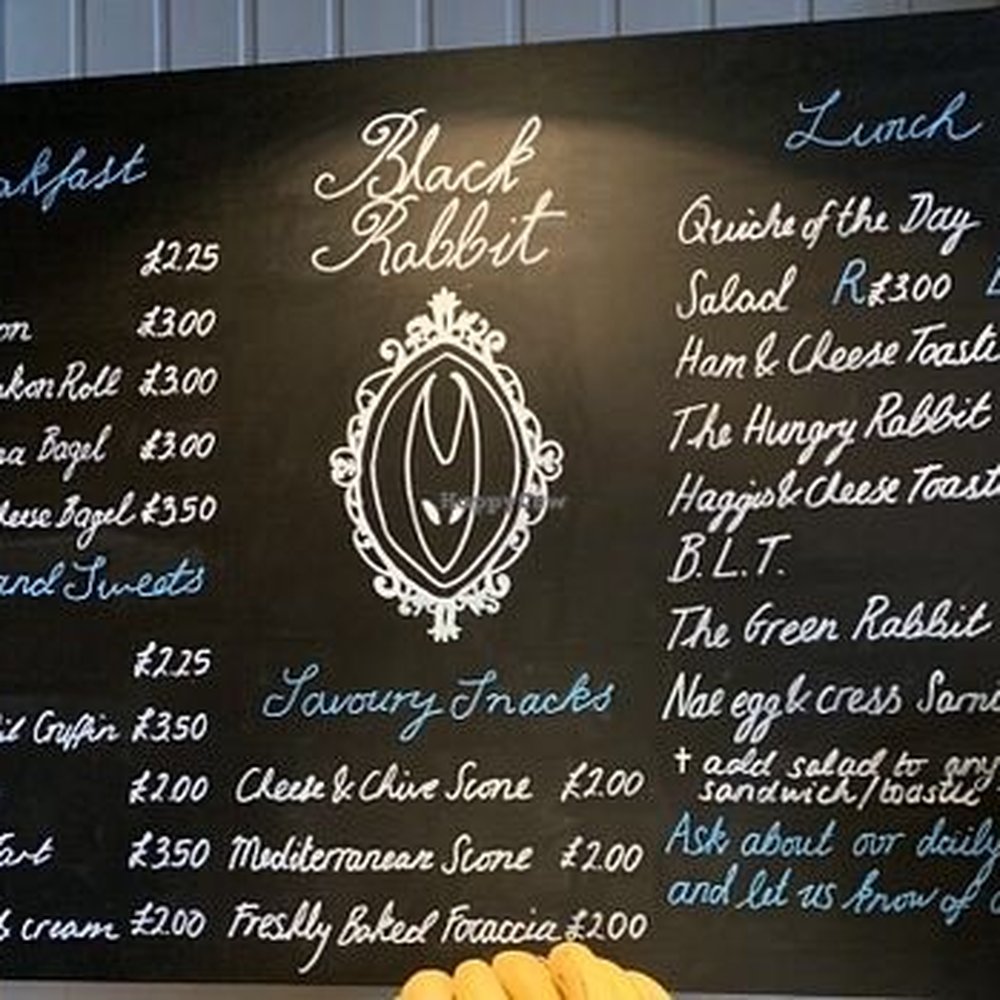 akfast
£2.25
on £3.00
akon Roll £3.00
na Bagel £3.00
cheese Bagel £3.50
and Sweets
£2.25
Gruffin £3.50
£2.00
Tart £3.50
cream £2.00
Black
Rabbit
HappyCow
Savoury Snacks
Cheese & Chive Scone £2.00
Mediterranean Scone £2.00
Freshly Baked Focaccia £2.00
Lunch
Quiche of the Day
Salad R £3.00
Ham & Cheese Toasti
The Hungry Rabbit
Haggis & Cheese Toast
B.L.T.
The Green Rabbit
Nae egg & cress Sarni
+ add salad to any
sandwich/toastie
Ask about our daily
and let us know of